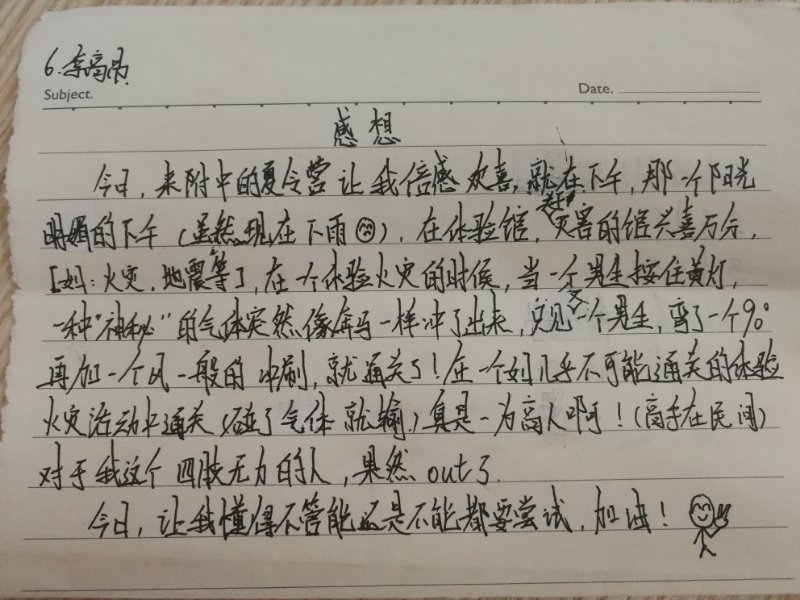 6.李高
Subject.
Date.
感想
今日,来附中的夏令营让我倍感欢喜,就在下午,那一个阳光
明媚的下午(虽然现在下雨),在体验馆,灾害的馆兴喜万分,
[如:火灾,地震等],在一个体验火灾的时候,当一个男生按住黄灯,
一种“神秘”的气体突然像奔马一样冲了出来,只见又一个男生,弯了一个90°
再加一个风一般的冲刺,就通关了!在一个如几乎不可能通关的体验
火灾活动中通关(碰了气体就输)真是一为高人啊!(高手在民间)
对于我这个四肢无力的人,果然out了.
今日,让我懂得不管能还是不能都要尝试,加油!